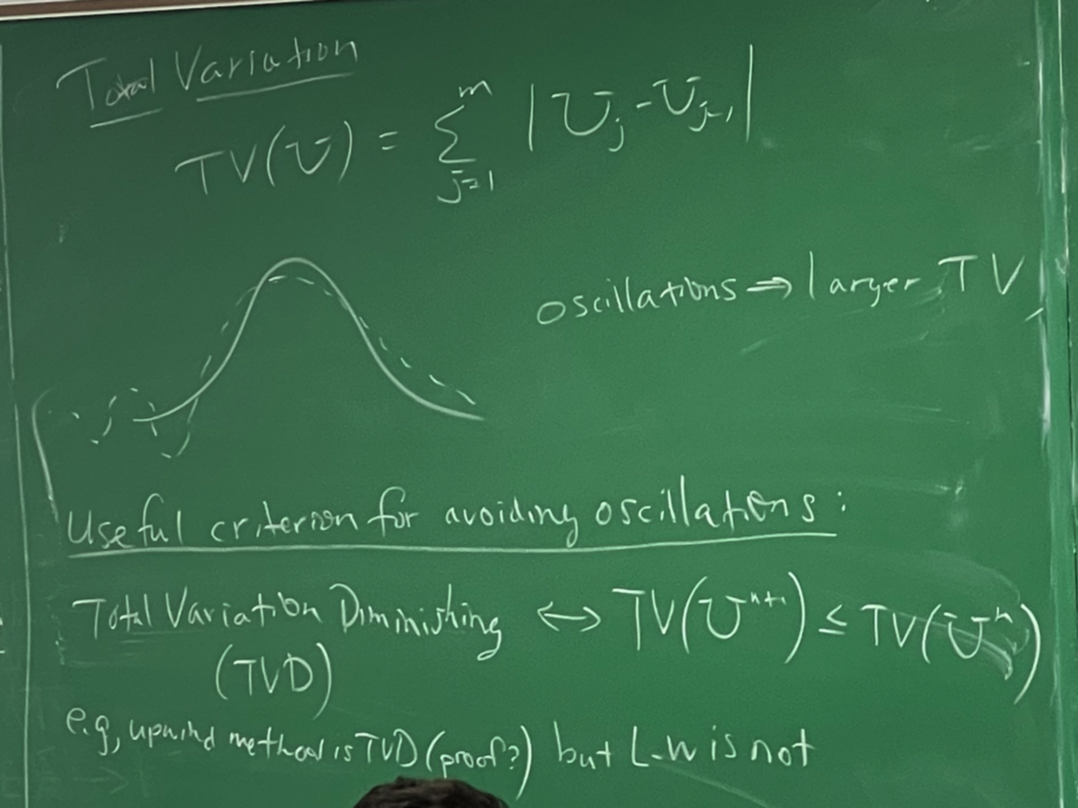 Total Variation
TV(U) = ∑_{j=1}^{m} |U_j - U_{j-1}|
oscillations ⇒ larger TV
Useful criterion for avoiding oscillations:
Total Variation Diminishing ↔ TV(U^{n+1}) ≤ TV(U^n)
(TVD)
e.g, upwind method is TVD (proof?) but L-W is not